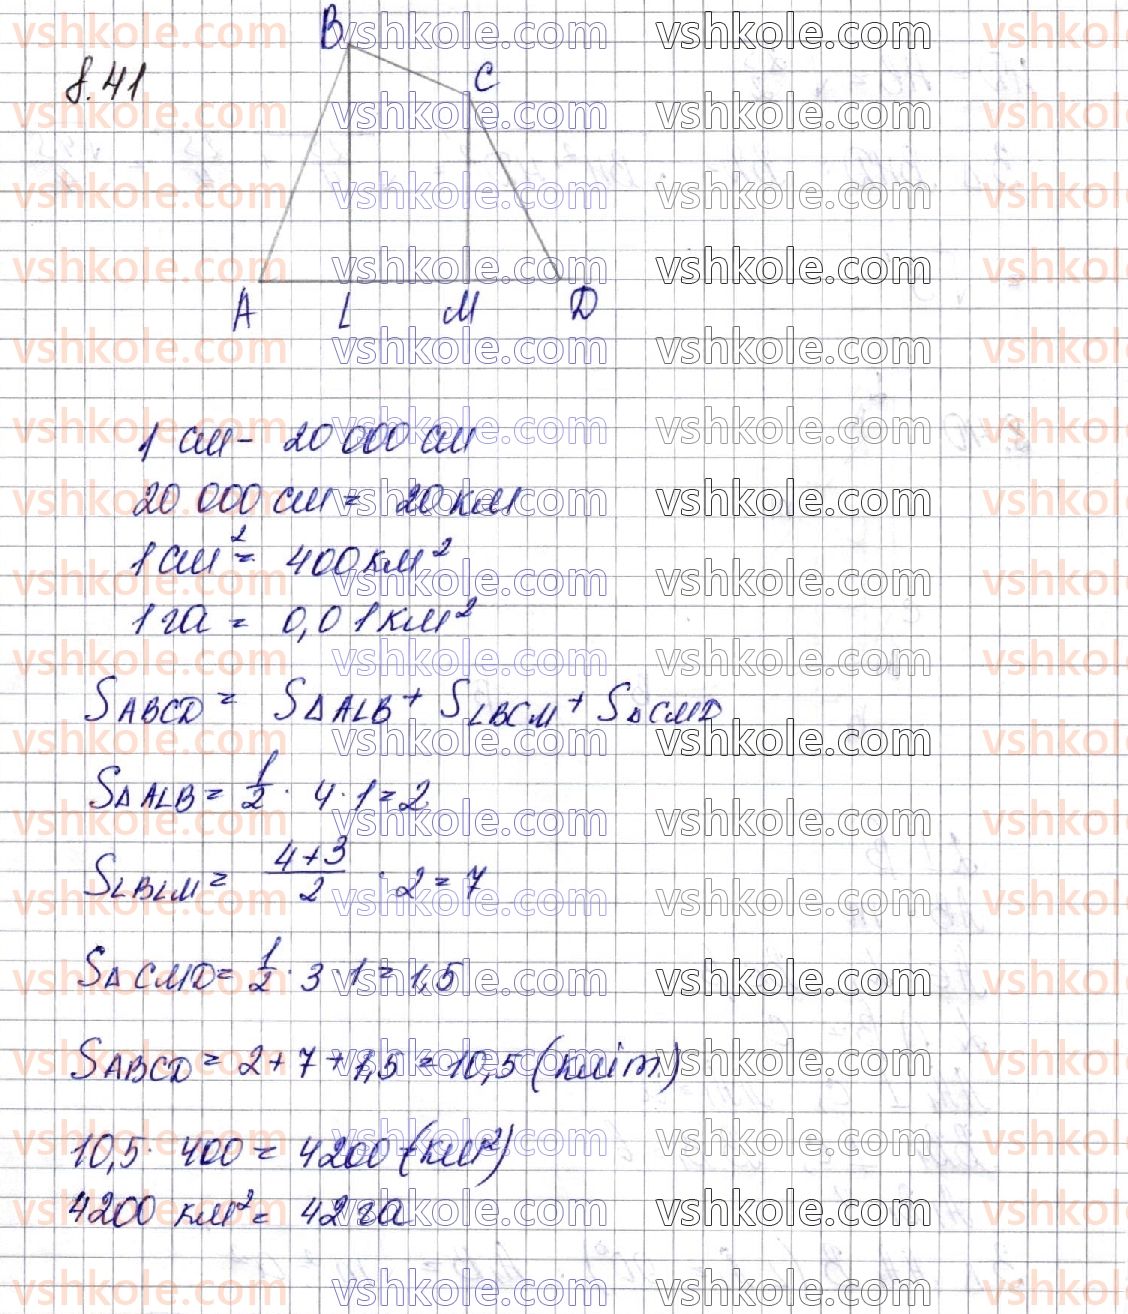 8.41
B
C
A L M D
1 см - 20 000 см
20 000 см = 20 км
1 см² = 400 км²
1 га = 0,01 км²
S ABCD = S△ALB + S LBCM + S△CMD
S△ALB = 1/2 · 4 · 1 = 2
S LBLM = (4+3)/2 · 2 = 7
S△CMD = 1/2 · 3 · 1 = 1,5
S ABCD = 2 + 7 + 1,5 = 10,5 (кліт.)
10,5 · 400 = 4200 (км²)
4200 км² = 42 га
vshkole.com